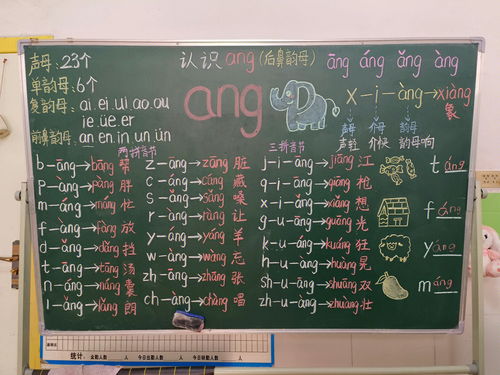 声母：23个
认识 ang (后鼻韵母)
āng áng ǎng àng
单韵母：6个
复韵母：ai.ei.ui ao.ou
ie üe er
前鼻韵母：an en in un ün
ang
x-i-àng→xiàng
象
声母 介母 韵母
声轻 介快 韵母响
两拼音节
b-āng→bāng 帮
p-àng→pàng 胖
m-áng→máng 忙
f-àng→fàng 放
d-ǎng→dǎng 挡
t-āng→tāng 汤
n-áng→náng 囊
l-ǎng→lǎng 朗
z-āng→zāng 脏
c-áng→cáng 藏
s-ǎng→sǎng 嗓
r-àng→ràng 让
y-áng→yáng 羊
w-àng→wàng
zh-āng→zhāng 张
ch-àng→chàng 唱
三拼音节
j-i-āng→jiāng 江
q-i-āng→qiāng 枪
x-i-ǎng→xiǎng 想
g-u-āng→guāng 光
k-u-áng→kuáng 狂
h-u-ǎng→huǎng 晃
sh-u-āng→shuāng 双
zh-u-àng→zhuàng 壮
t áng
f áng
y áng
m áng
统计：